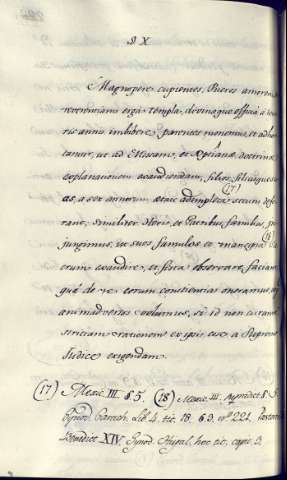 § X
Magnopere cupientes, Pueros amorem, et
reverentiam erga templa, divinaque officia à tene-
ris annis imbibere, parentes monemus, et adhor-
tamur, ut ad Missam, et Xptianæ doctrinæ
explanationem audiendam, filios, filiasque su-
as, a sex annorum ætate adimpleta (17) secum defe-
rant; similiter Heris, et Patribus familias in-
jungimus, ut suos famulos et mancipia (18)
eorum audire, et festa observare, faciant
quâ de re eorum conscientias oneramus, et
animadversos volumus, si id non curant
strictam rationem ex ipsis esse a Supremo
Judice exigendam.
(17) Mexic. III. § 5. (18) Mexic. III.
Synod. Carach. Lib. 4. tit. 18. § 3. nº 221.
Benedict XIV Synod. hoc tit. cap. 3.